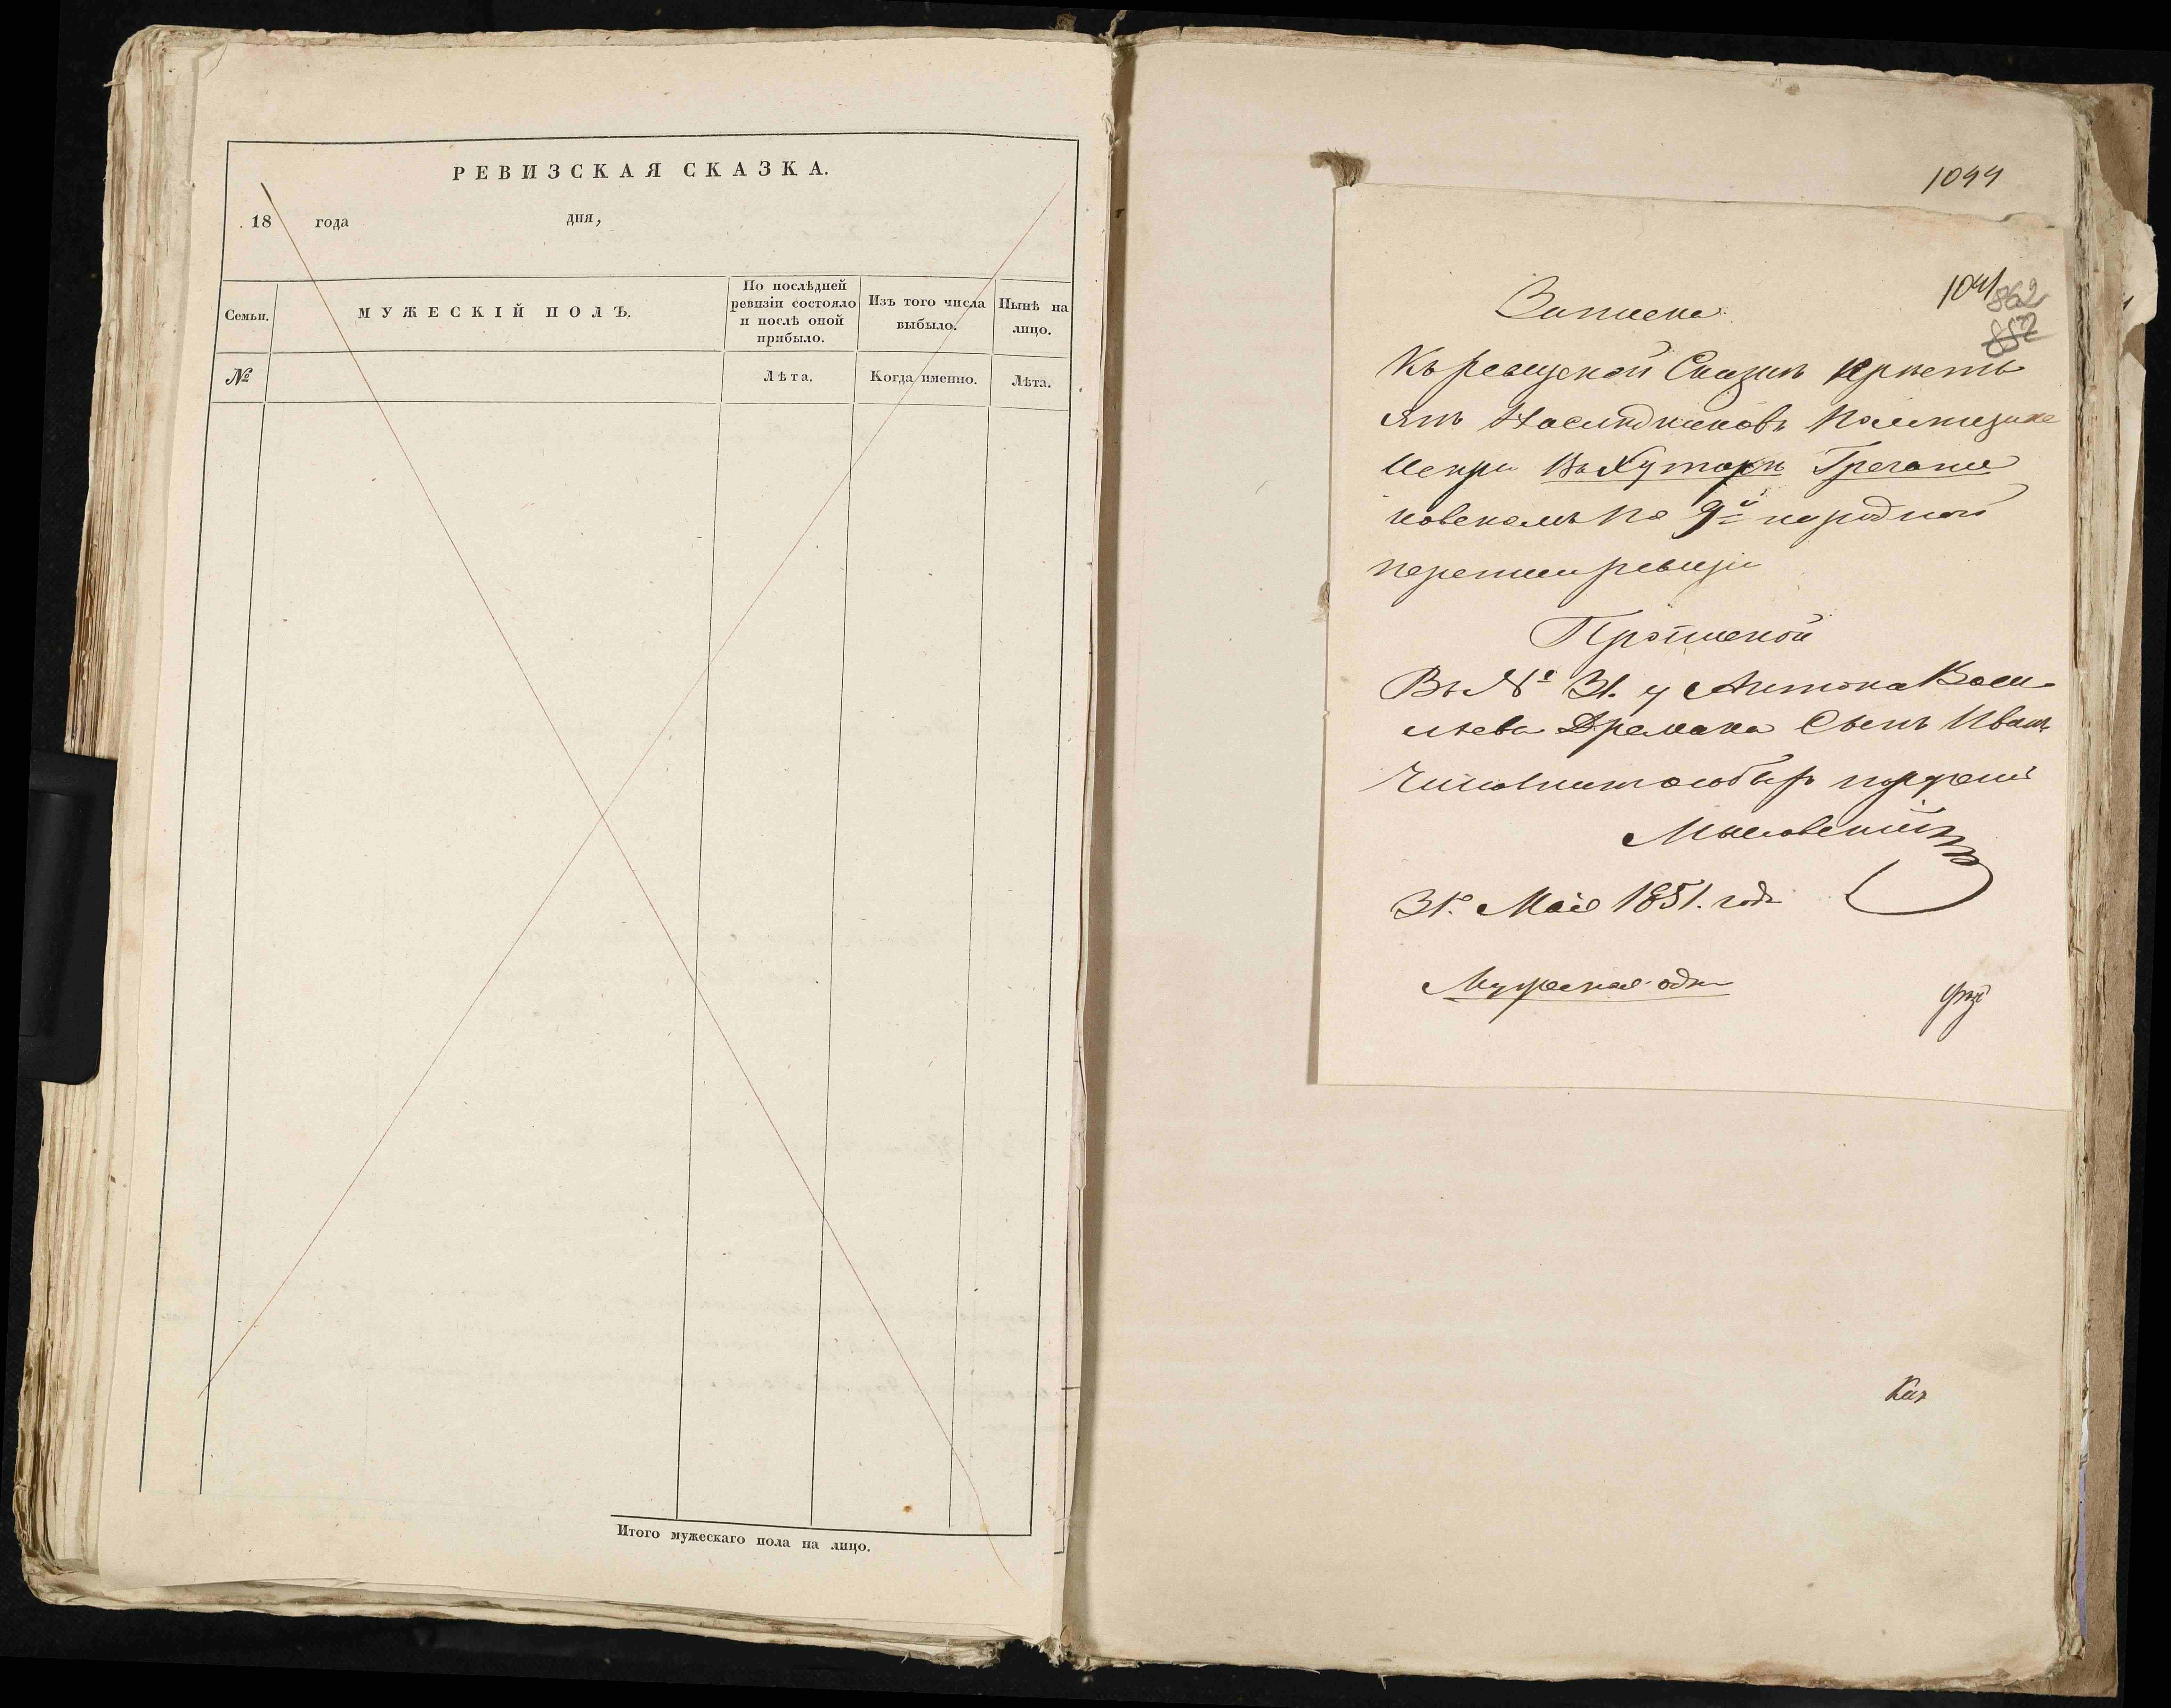 РЕВИЗСКАЯ СКАЗКА.
18 года дня,
Семьи.
МУЖЕСКІЙ ПОЛЪ.
По послѣдней
ревизіи состояло
и послѣ оной
прибыло.
Изъ того числа
выбыло.
Нынѣ на
лицо.
№
Лѣта.
Когда именно.
Лѣта.
Итого мужескаго пола на лицо.
1044
1041
862
852
Записка
Къ ревизской Сказкѣ кресть
янъ Наслѣдниковъ
въ Хуторѣ Гречани
новскомъ по 9й народной
переписи ревизіи
Прописной
Въ № 31. у Антона Васи
льева Дремака Сынъ Иванъ
31. Мая 1851. года
Мужеская одна